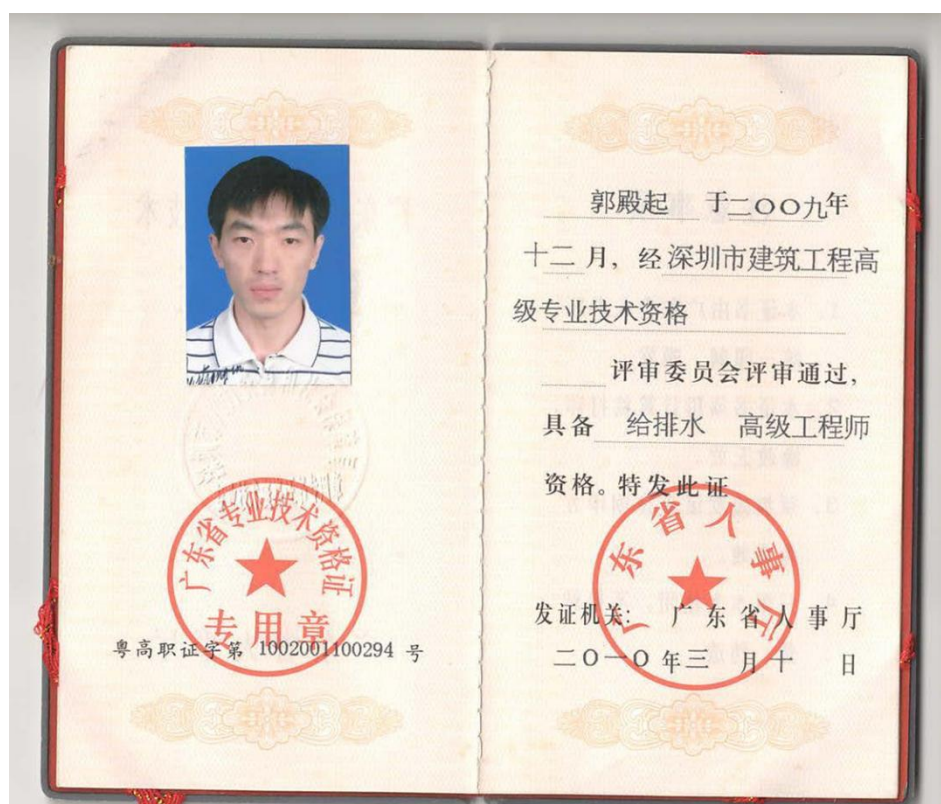 广东省专业技术资格证
专用章
粤高职证字第 1002001100294 号
郭殿起 于二〇〇九年
十二月，经深圳市建筑工程高
级专业技术资格
评审委员会评审通过，
具备 给排水 高级工程师
资格。特发此证
广东省人事厅
发证机关： 广东省人事厅
二〇一〇年三月十日